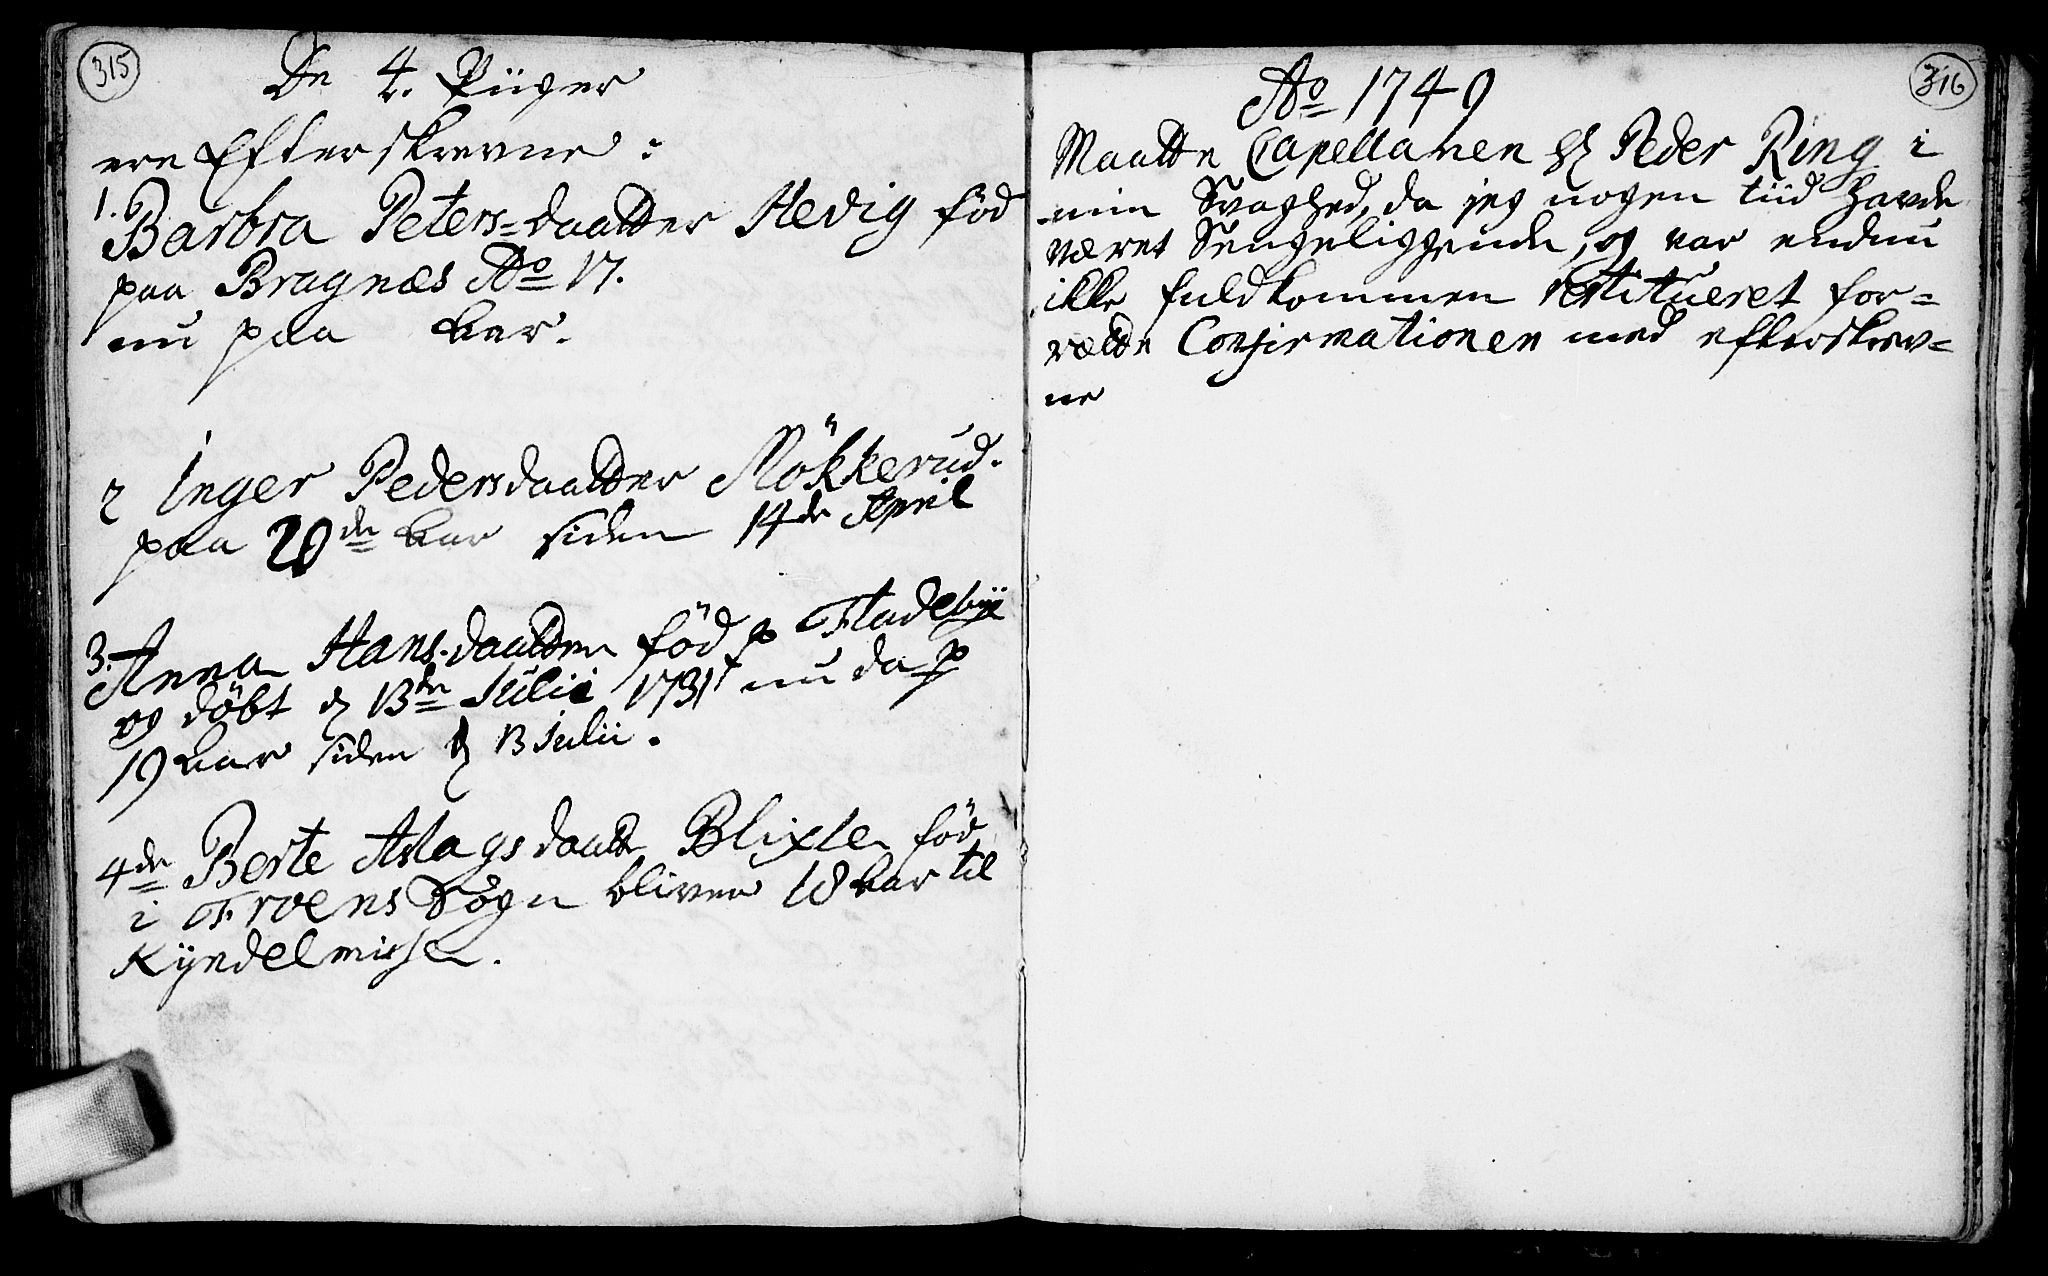 315
De 4. Piiger
ere Efterskrevne :
1. Barbra Peters=daatter Hevig föd
paa Bragnæs Ao 17.
nu paa Aar.
2 Inger Pedersdaatter Mökkerud.
paa 20de Aar siden 14de April
3. Anna Hans-daatter föd p Fladebÿe
og döbt d 13de Julii 1731 nu da p
19 Aar siden d 13 Julii.
4de Berte Aslagsdaatt Blixle föd
i Froens Sogn bliver 18 Aar til
Kÿndelmisse.
316
Ao 1749
Maatte Capellanen Hr Peder Ring i
min Svaghed, da jeg nogen tiid havde
været Sengeliggende, og var endnu
ikke fuldkommen restitueret for=
rætte Confirmationen med efterskrev=
ne